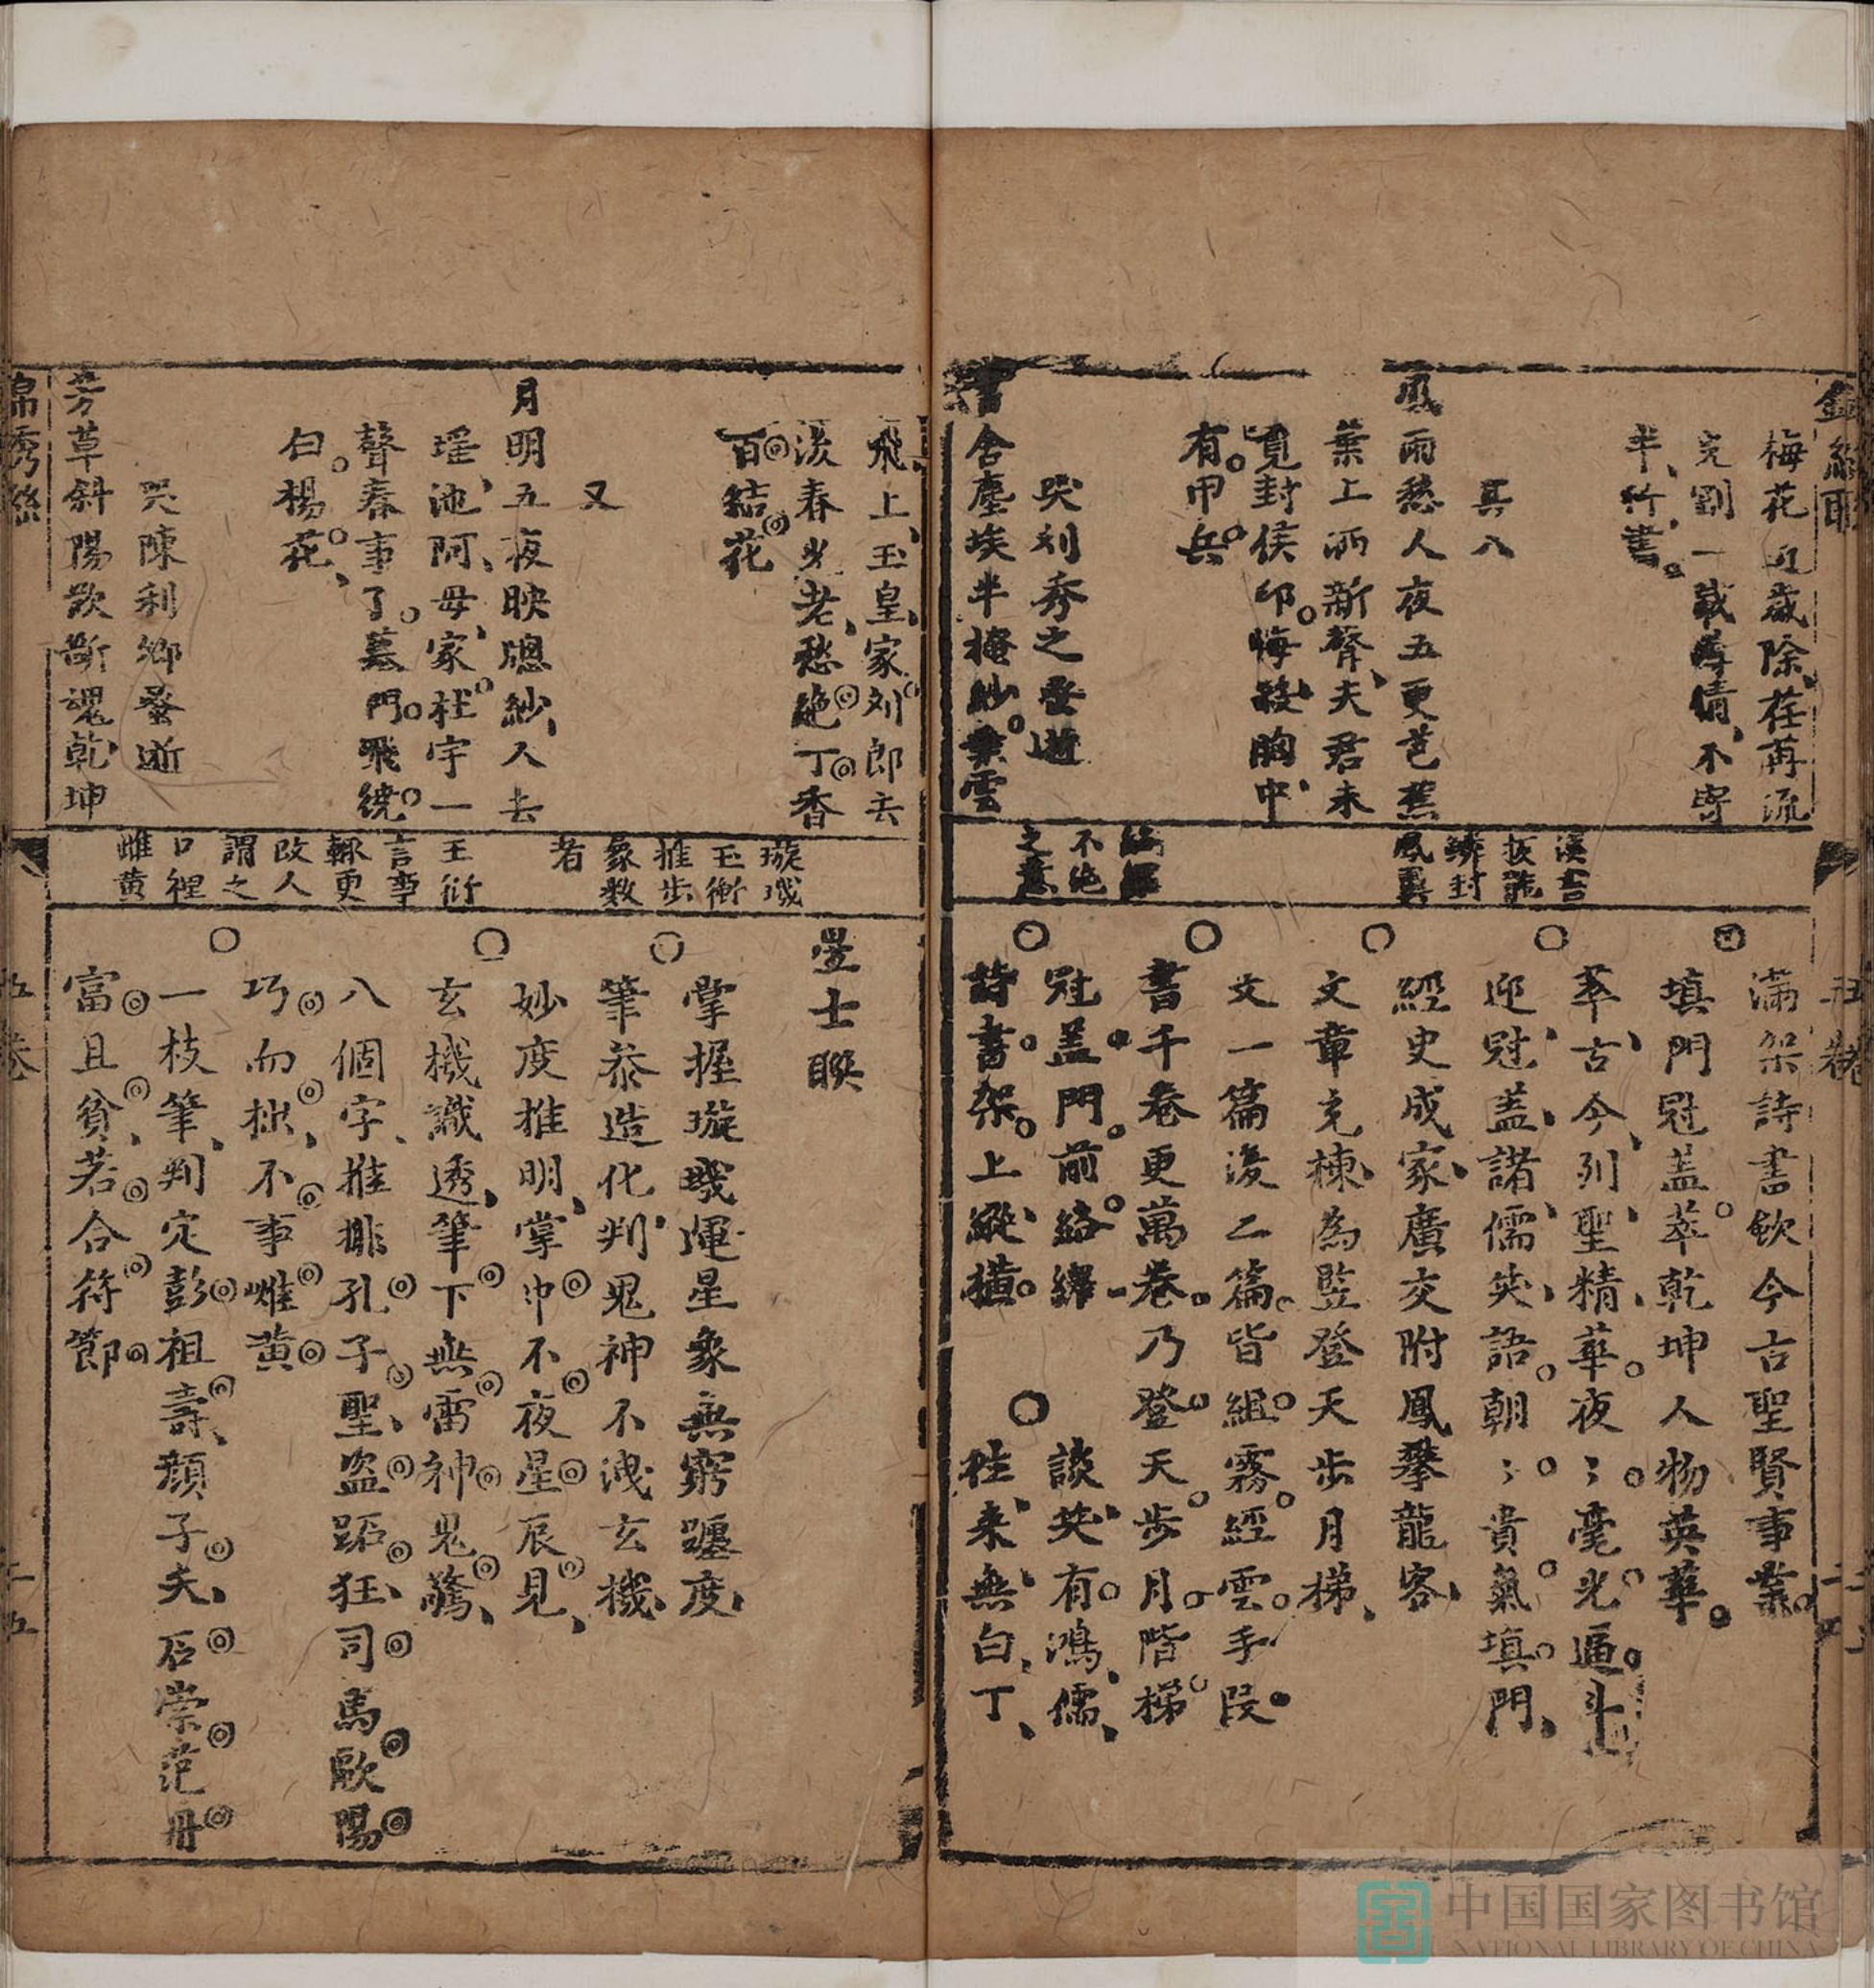 梅花近歲除荏苒流
完劄一載尊倩不寄
半行書
其八
風雨愁人夜五更芭蕉
葉上洒新聲夫君未
覓封侯印悔殺胸中
有甲兵
哭刘秀之登逝
書舍塵埃半掩紗葉雲
漢書
拔茹
鱗封
鳳翼
不絶
之意
滿架詩書飲今古聖賢事業
填門冠盖萃乾坤人物英華
萃古今列聖精華夜〻毫光逼斗
迎冠盖諸儒笑語朝〻貴氣填門
經史成家廣交附鳳攀龍客
文章充棟為監登天步月梯
文一篇後乙篇皆組霧經雲手段
書千卷更萬卷乃登天步月階梯
冠盖門前絡繹 談笑有鴻儒
詩書架上縱横 往来無白丁
五卷
飛上玉皇家刘郎去
後春光老愁絶丁香
百結花
又
月明五夜映牕紗人去
瑶池阿母家杜宇一
聲春事了墓門飛繞
白楊花
哭陳利卿登逝
芳草斜陽欲斷魂乾坤
璇璣
玉衡
推步
象数
者
王衍
言事
輒更
改人
謂之
口裡
雌黄
星士聯
掌握璇璣運星象無窮躔度
筆恭造化判鬼神不洩玄機
妙度推明掌中不夜星辰見
玄機識透筆下無雷神鬼驚
八個字推排孔子聖盜跖狂司馬歐陽
巧而拙不事雌黄
一枝筆判定彭祖壽顔子夭石崇范丹
富且貧若合符節
錦秀聯
五卷
二五
中国国家图书馆
NATIONAL LIBRARY OF CHINA